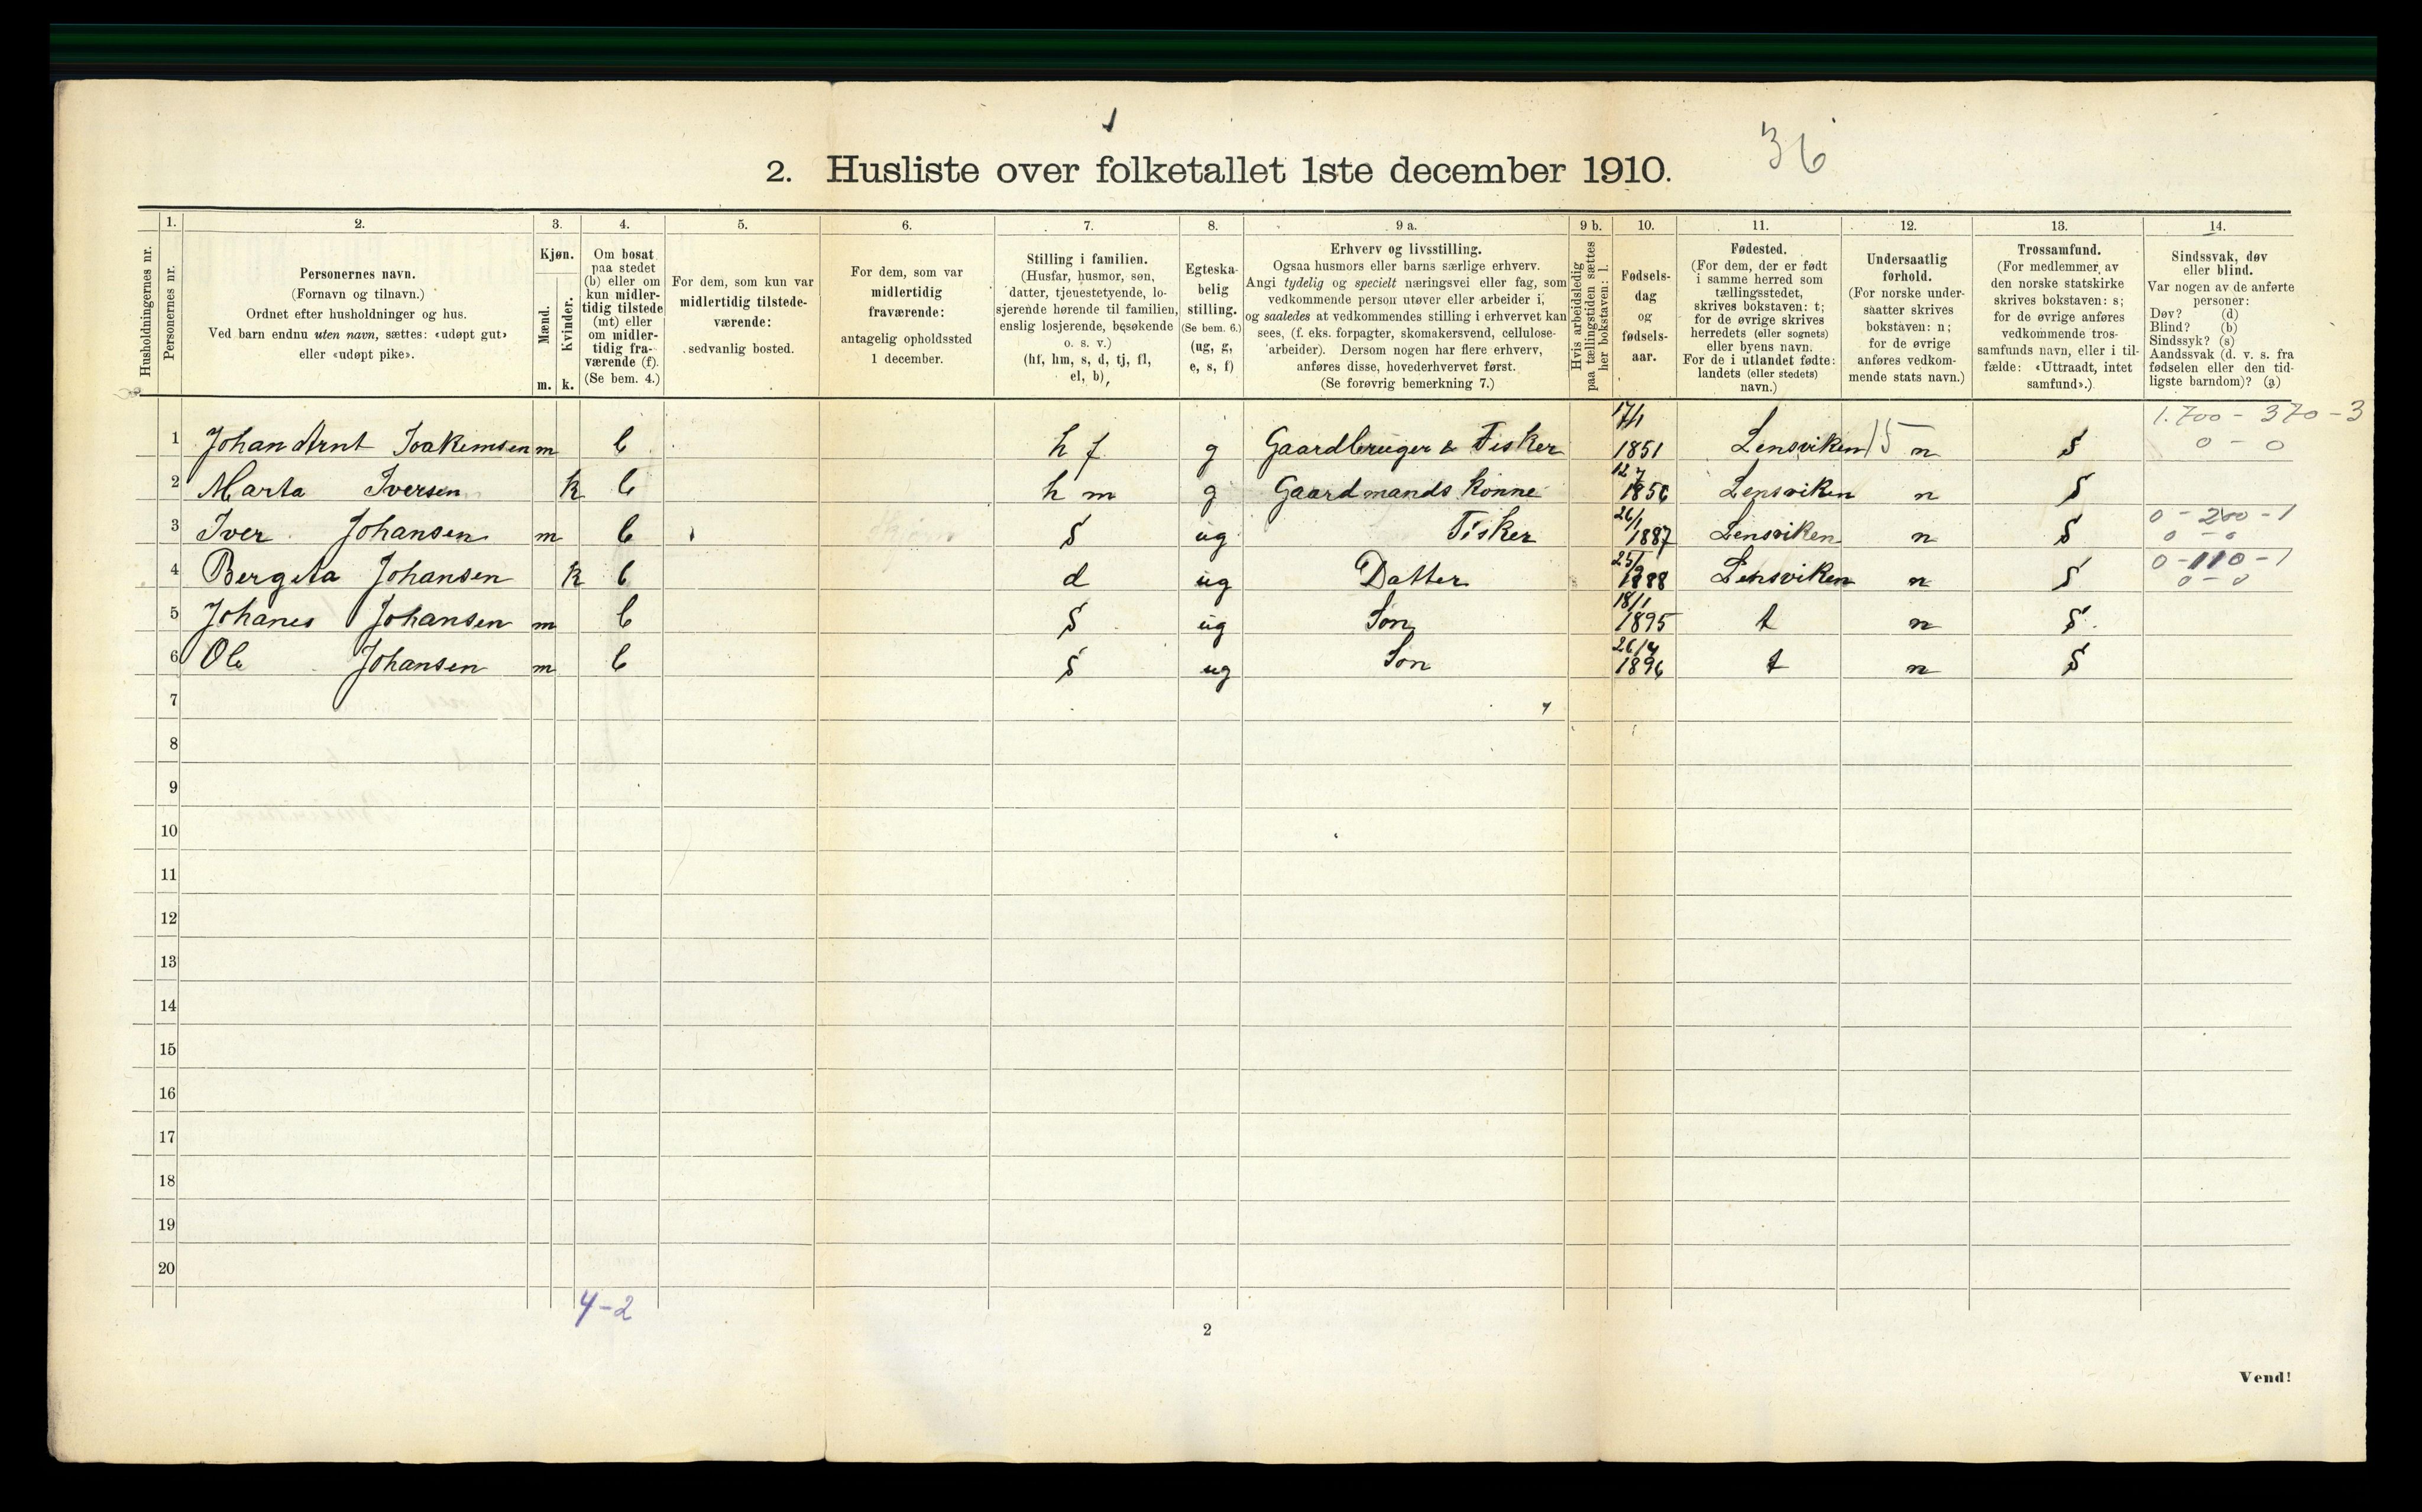 36
2. Husliste over folketallet 1ste december 1910.
Husholdningernes nr.
1.
Personernes nr.
2.
Personernes navn.
(Fornavn og tilnavn.)
Ordnet efter husholdninger og hus.
Ved barn endnu uten navn, sættes: «udøpt gut»
eller «udøpt pike».
3.
Kjøn.
Mænd.
Kvinder.
m. k.
4.
Om bosat
paa stedet
(b) eller om
kun midler-
tidig tilstede
(mt) eller
om midler-
tidig fra-
værende (f).
(Se bem. 4.)
5.
For dem, som kun var
midlertidig tilstede-
værende:
sedvanlig bosted.
6.
For dem, som var
midlertidig
fraværende:
antagelig opholdssted
1 december.
7.
Stilling i familien.
(Husfar, husmor, søn,
datter, tjenestetyende, lo-
sjerende hørende til familien,
enslig losjerende, besøkende
o. s. v.)
(hf, hm, s, d, tj, fl,
el, b),
8.
Egteska-
belig
stilling.
(Se bem. 6.)
(ug, g,
e, s, f)
9 a.
Erhverv og livsstilling.
Ogsaa husmors eller barns særlige erhverv.
Angi tydelig og specielt næringsvei eller fag, som
vedkommende person utøver eller arbeider i,
og saaledes at vedkommendes stilling i erhvervet kan
sees, (f. eks. forpagter, skomakersvend, cellulose-
arbeider). Dersom nogen har flere erhverv,
anføres disse, hovederhvervet først.
(Se forøvrig bemerkning 7.)
9 b.
Hvis arbeidsledig
paa tællingstiden sættes
her bokstaven: l.
10.
Fødsels-
dag
og
fødsels-
aar.
11.
Fødested.
(For dem, der er født
i samme herred som
tællingsstedet,
skrives bokstaven: t;
for de øvrige skrives
herredets (eller sognets)
eller byens navn.
For de i utlandet fødte:
landets (eller stedets)
navn.)
12.
Undersaatlig
forhold.
(For norske under-
saatter skrives
bokstaven: n;
for de øvrige
anføres vedkom-
mende stats navn.)
13.
Trossamfund.
(For medlemmer av
den norske statskirke
skrives bokstaven: s;
for de øvrige anføres
vedkommende tros-
samfunds navn, eller i til-
fælde: «Uttraadt, intet
samfund».)
14.
Sindssvak, døv
eller blind.
Var nogen av de anførte
personer:
Døv? (d)
Blind? (b)
Sindssyk? (s)
Aandssvak (d. v. s. fra
fødselen eller den tid-
ligste barndom)? (a)
1 Johan Arnt Joakimsen m b h f g Gaardbruger & Fisker 17/1 1851 Lensviken 15 n S 1.700 - 370 - 3
0 - 0
2 Marta Iversen k b h m g Gaardmands konne 12/7 1856 Lensviken n S
3 Iver Johansen m b S ug Fisker 26/1 1887 Lensviken n S 0 - 200 - 1
0 - 0
4 Bergeta Johansen k b d ug Datter 25/9 1888 Lensviken n S 0 - 110 - 1
0 - 0
5 Johanes Johansen m b S ug Son 18/1 1895 t n S
6 Ole Johansen m b S ug Son 26/4 1896 t n S
7
8
9
10
11
12
13
14
15
16
17
18
19
20
4-2
2
Vend!